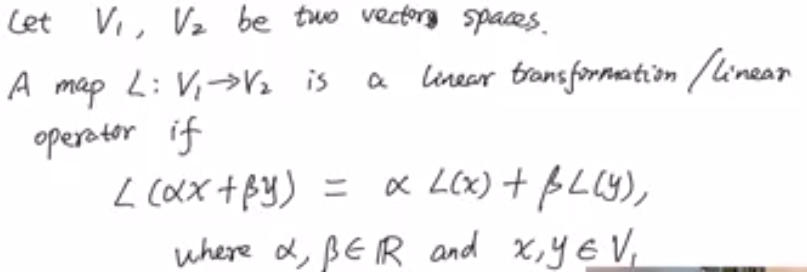 Let V₁, V₂ be two vectors spaces.
A map L: V₁→V₂ is a linear transformation/linear
operator if
L(αx+βy) = α L(x) + βL(y),
where α, β∈ℝ and x,y ∈ V₁